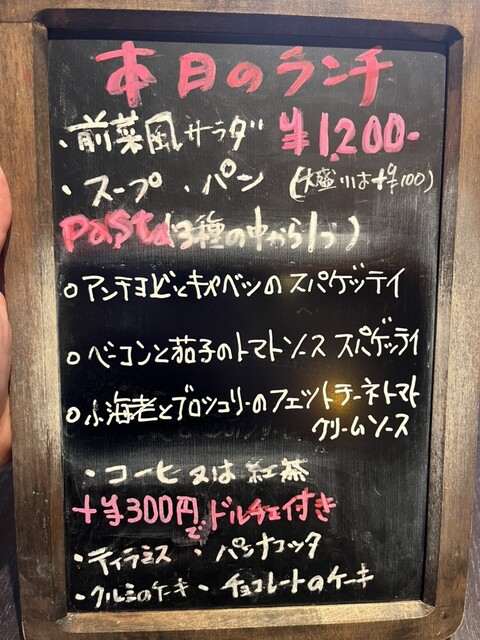 本日のランチ
・前菜風サラダ ¥1,200-
・スープ ・パン (大盛りは+¥100)
Pasta(3種の中から1つ)
○アンチョビとキャベツのスパゲッティ
○ベーコンと茄子のトマトソース スパゲッティ
○小海老とブロッコリーのフェットチーネトマト
クリームソース
・コーヒー又は紅茶
+¥300円でドルチェ付き
・ティラミス ・パンナコッタ
・クルミのケーキ・チョコレートのケーキ